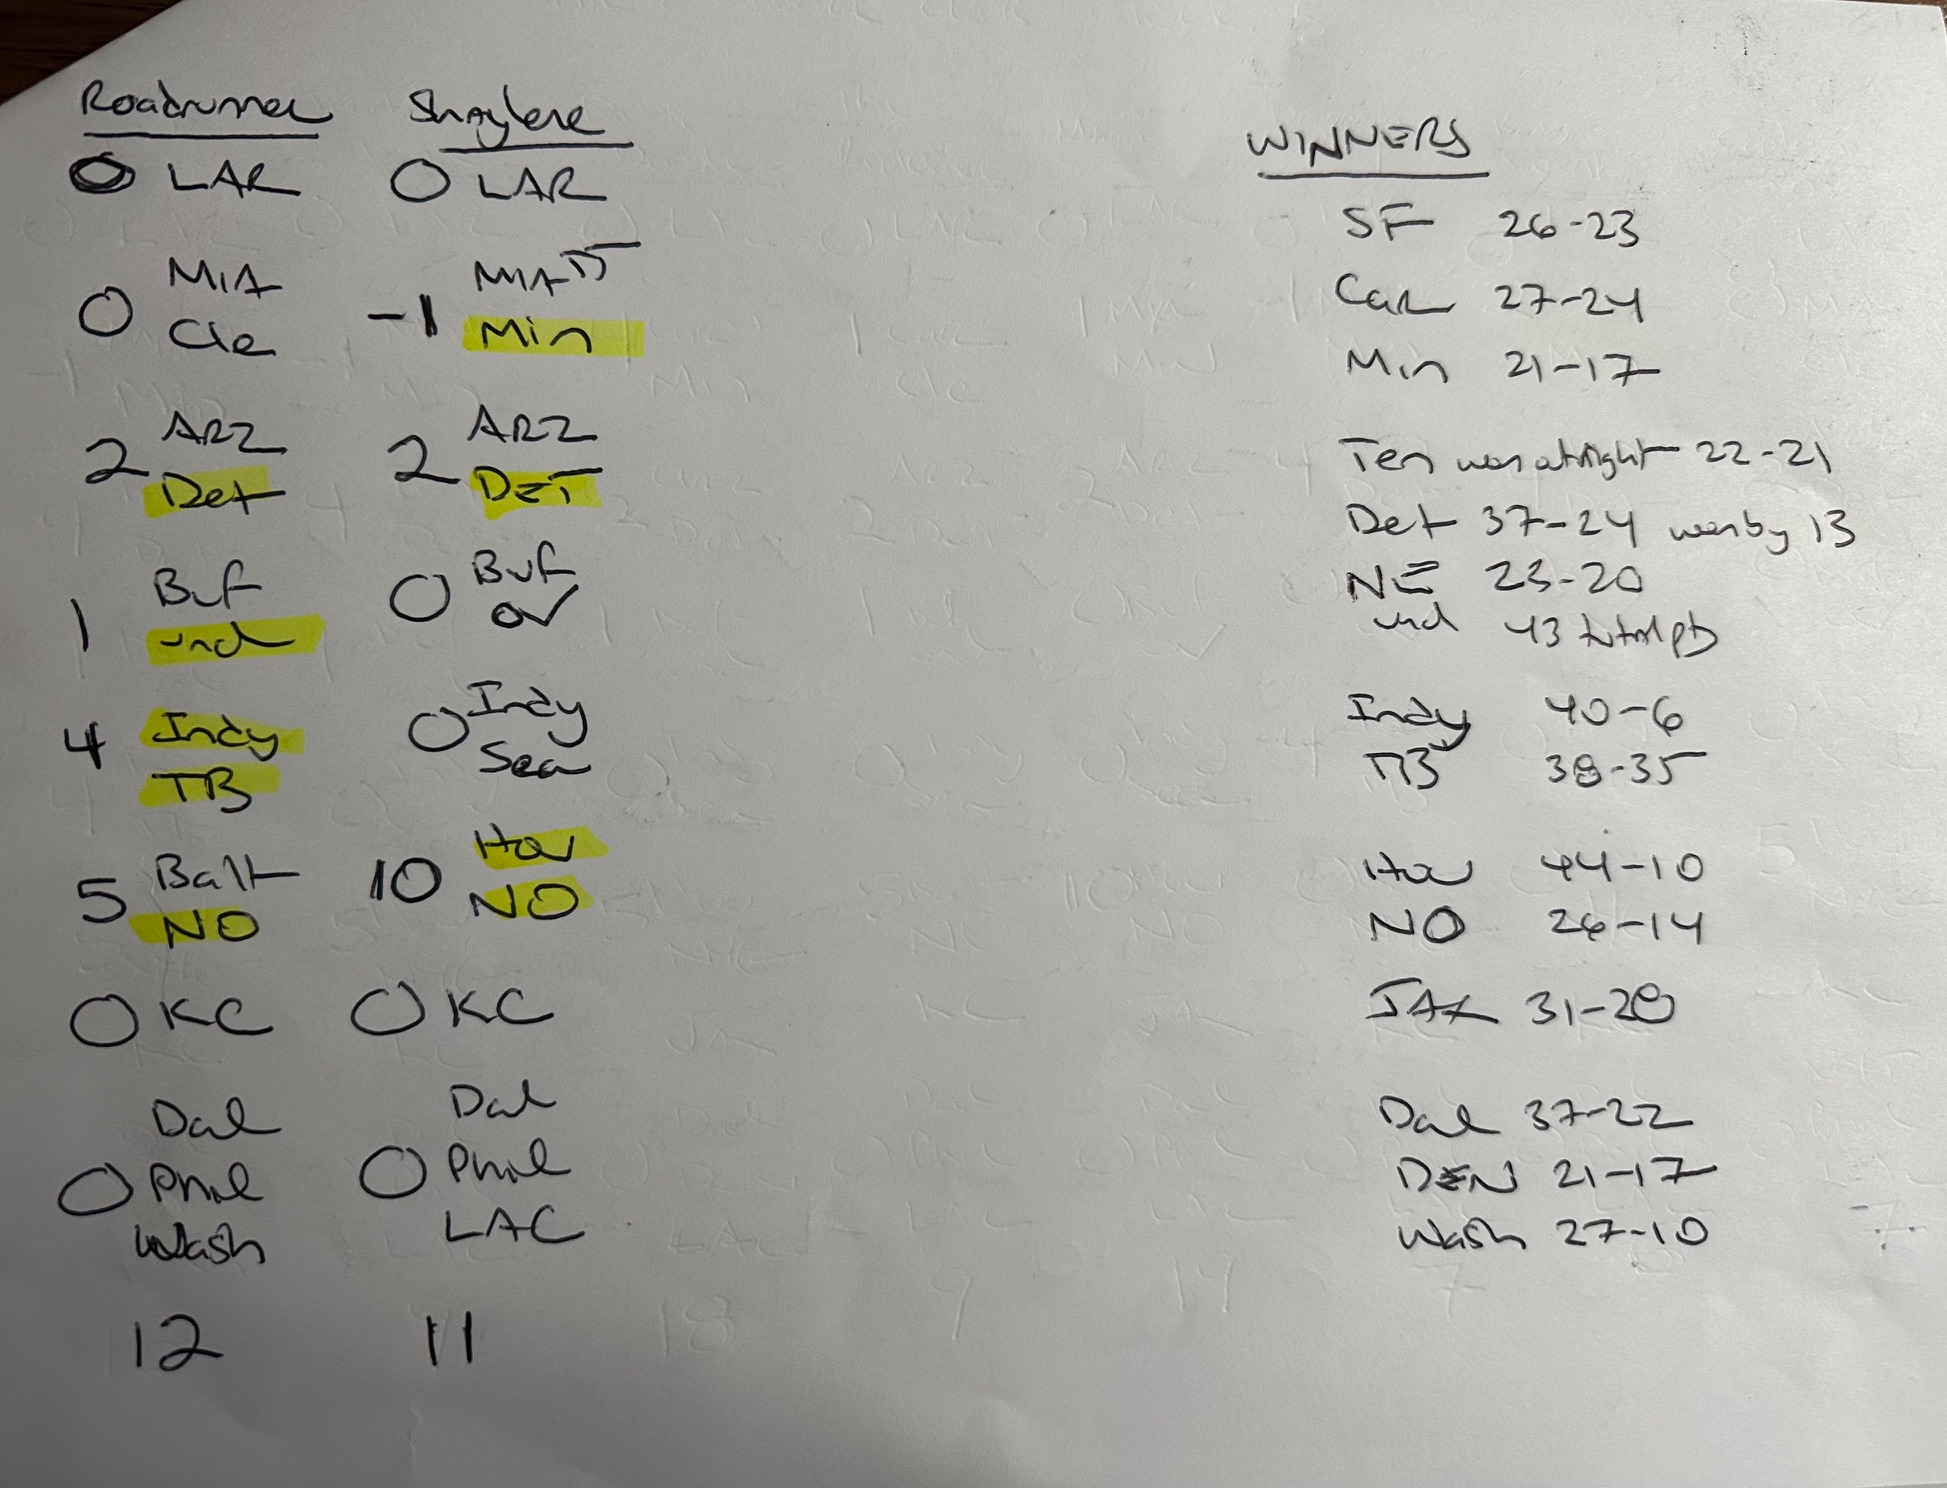 Roadrunner
0 LAR
MIA
0 Cle
ARZ
2 Det
Buf
1 und
4 Indy
TB
Balt
5 NO
0 KC
Dal
0 Phil
Wash
12
Shaylene
0 LAR
MIA
-1 Min
ARZ
2 DET
0 Buf
ov
0 Indy
Sea
Hou
10 NO
0 KC
Dal
0 Phil
LAC
11
WINNERS
SF 26-23
Car 27-24
Min 21-17
Ten 22-21
Det 37-24 won by 13
NE 23-20
und 43 total pts
Indy 40-6
TB 38-35
Hou 44-10
NO 26-14
JAX 31-28
Dal 37-22
DEN 21-17
Wash 27-10